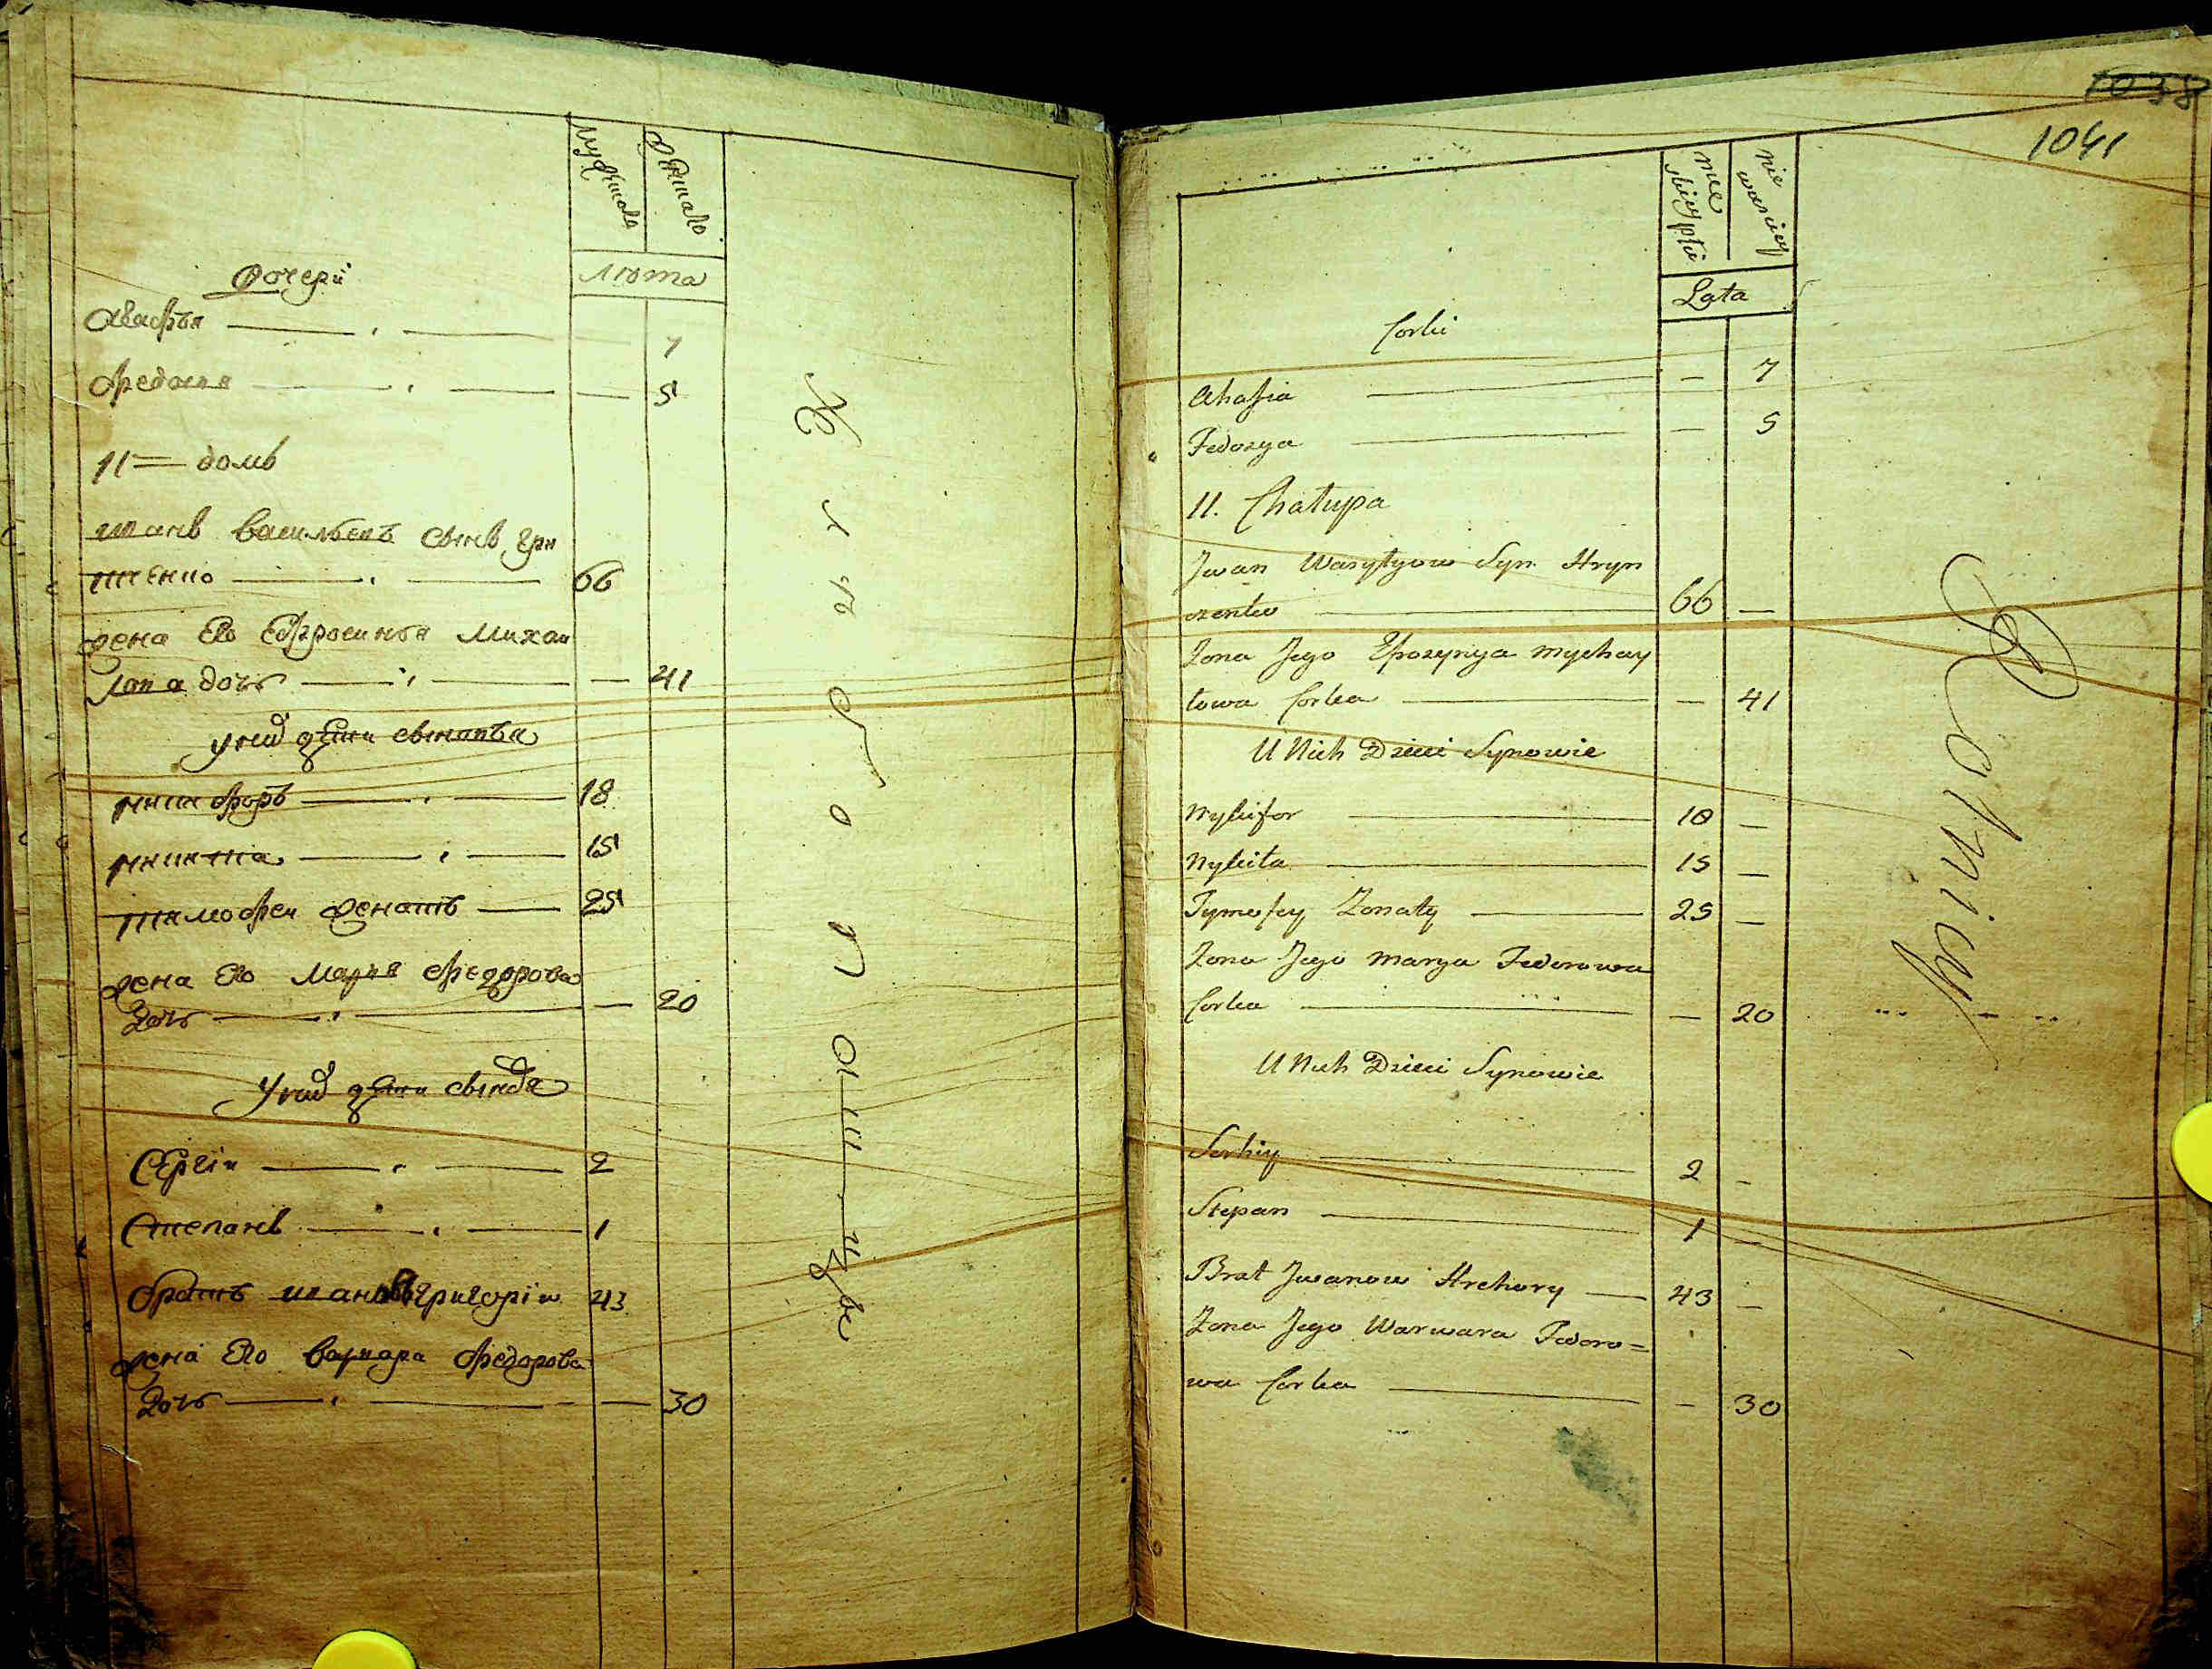 мужеска
женско
лѣта
Дочери
Агафья 7
Федосия 5
11 домъ
иванъ василъевъ сынъ гри
ченко 66
жена его Ефросинья михаи
лова дочь 41
у них дети сыновья
никифоръ 18
никита 15
тимофеи женатъ 25
жена его марія федорова
дочь 20
у них дети сыновя
Сергіи 2
Степанъ 1
братъ ивановъ григоріи 43
жена его варвара федорова
дочь 30
1038
1041
męskiey płci
niewieściey
Lata
Corki
Ahafia — 7
Fedosya — 5
11. Chałupa
Jwan Wasylyow Syn Hryn
czenko 66 —
Zona Jego Efrozynya Mychay
łowa Corka — 41
U Nich Dzieci Synowie
Nykifor 18 —
Nykita 15 —
Tymofey Zonaty 25 —
Zona Jego Marya Fedorowa
Corka — 20
U Nich Dzieci Synowie
Serhiy 2 —
Stepan 1 —
Brat Jwanow Hrehory 43 —
Zona Jego Warwara Fedoro=
wa Corka — 30